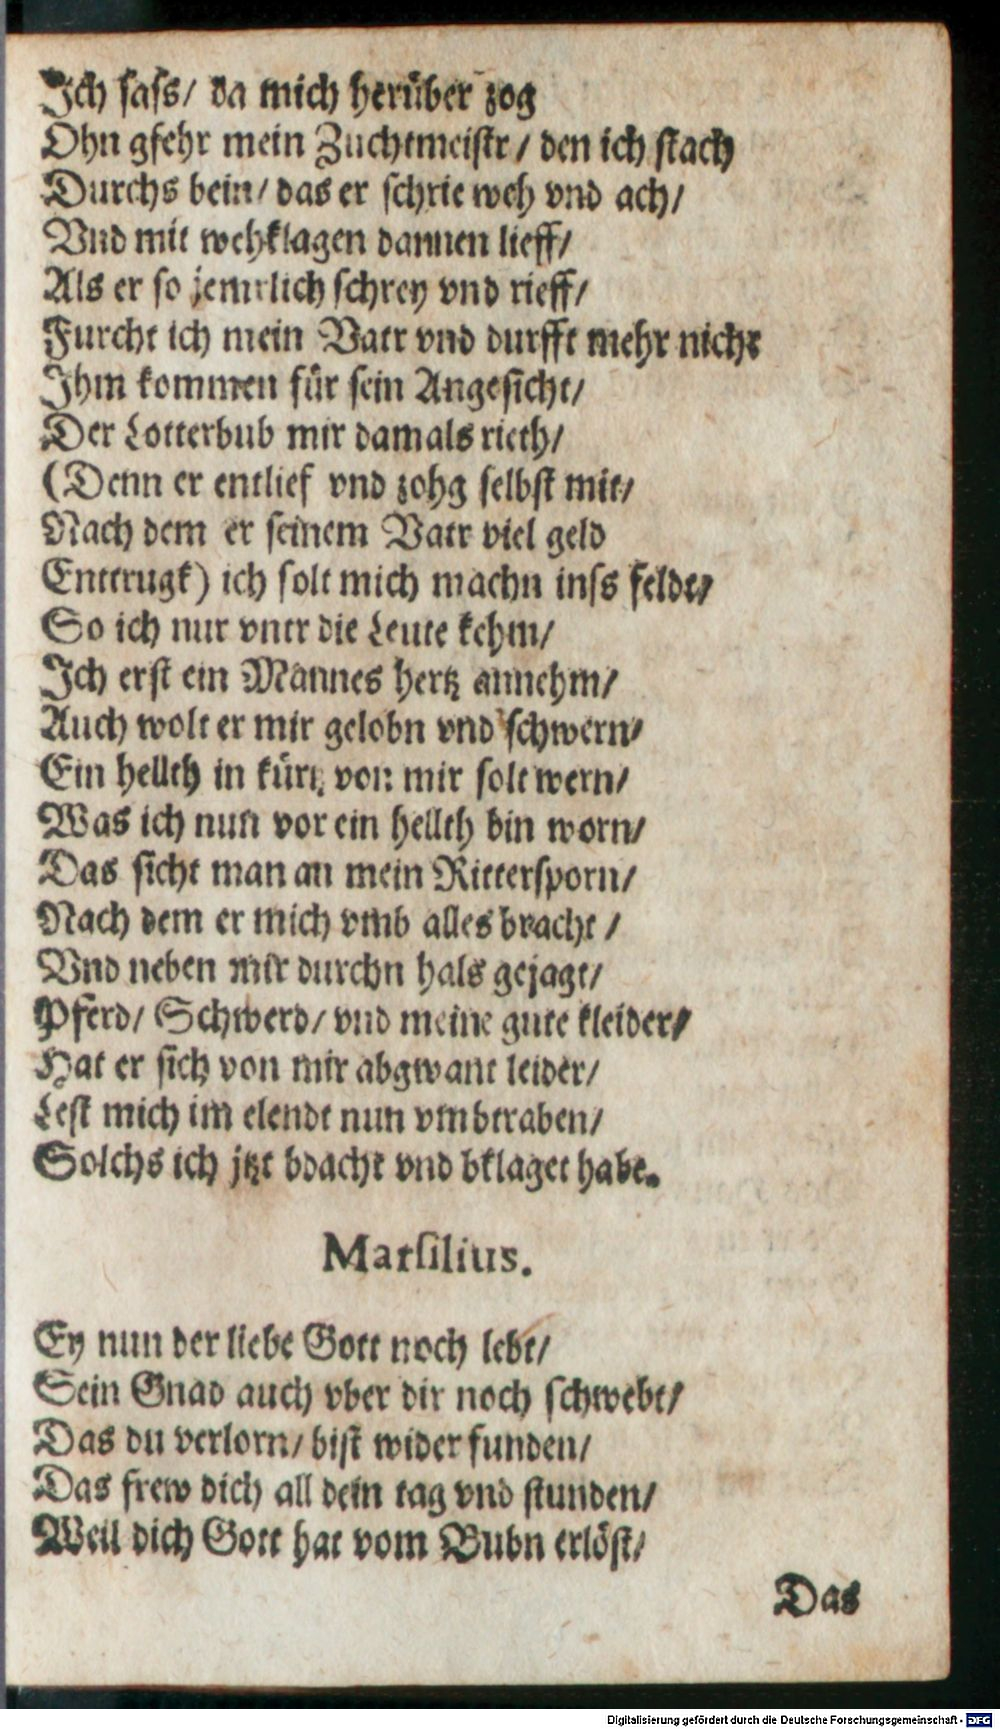 Ich sass/ da mich herüber zog
Ohn gfehr mein Zuchtmeistr/ den ich stach
Durchs bein/ das er schrie weh vnd ach/
Vnd mit wehklagen dannen lieff/
Als er so jemrlich schrey vnd rieff/
Furcht ich mein Vatr vnd durfft mehr nicht
Ihm kommen für sein Angesicht/
Der Lotterbub mir damals rieth/
(Denn er entlief vnd zohg selbst mit/
Nach dem er seinem Vatr viel geld
Enttrugk) ich solt mich machn inss feldt/
So ich nur vntr die Leute kehm/
Ich erst ein Mannes hertz annehm/
Auch wolt er mir gelobn vnd schwern/
Ein hellth in kürtz von mir solt wern/
Was ich nun vor ein hellth bin worn/
Das sicht man an mein Rittersporn/
Nach dem er mich vmb alles bracht /
Vnd neben mir durchn hals gejagt/
Pferd/ Schwerd/ vnd meine gute kleider/
Hat er sich von mir abgwant leider/
Lest mich im elendt nun vmbtraben/
Solchs ich jtzt bdacht vnd bklaget habe.
Marsilius.
Ey nun der liebe Gott noch lebt/
Sein Gnad auch vber dir noch schwebt/
Das du verlorn/ bist wider funden/
Das frew dich all dein tag vnd stunden/
Weil dich Gott hat vom Bubn erlöst/
Das
Digitalisierung gefördert durch die Deutsche Forschungsgemeinschaft - DFG